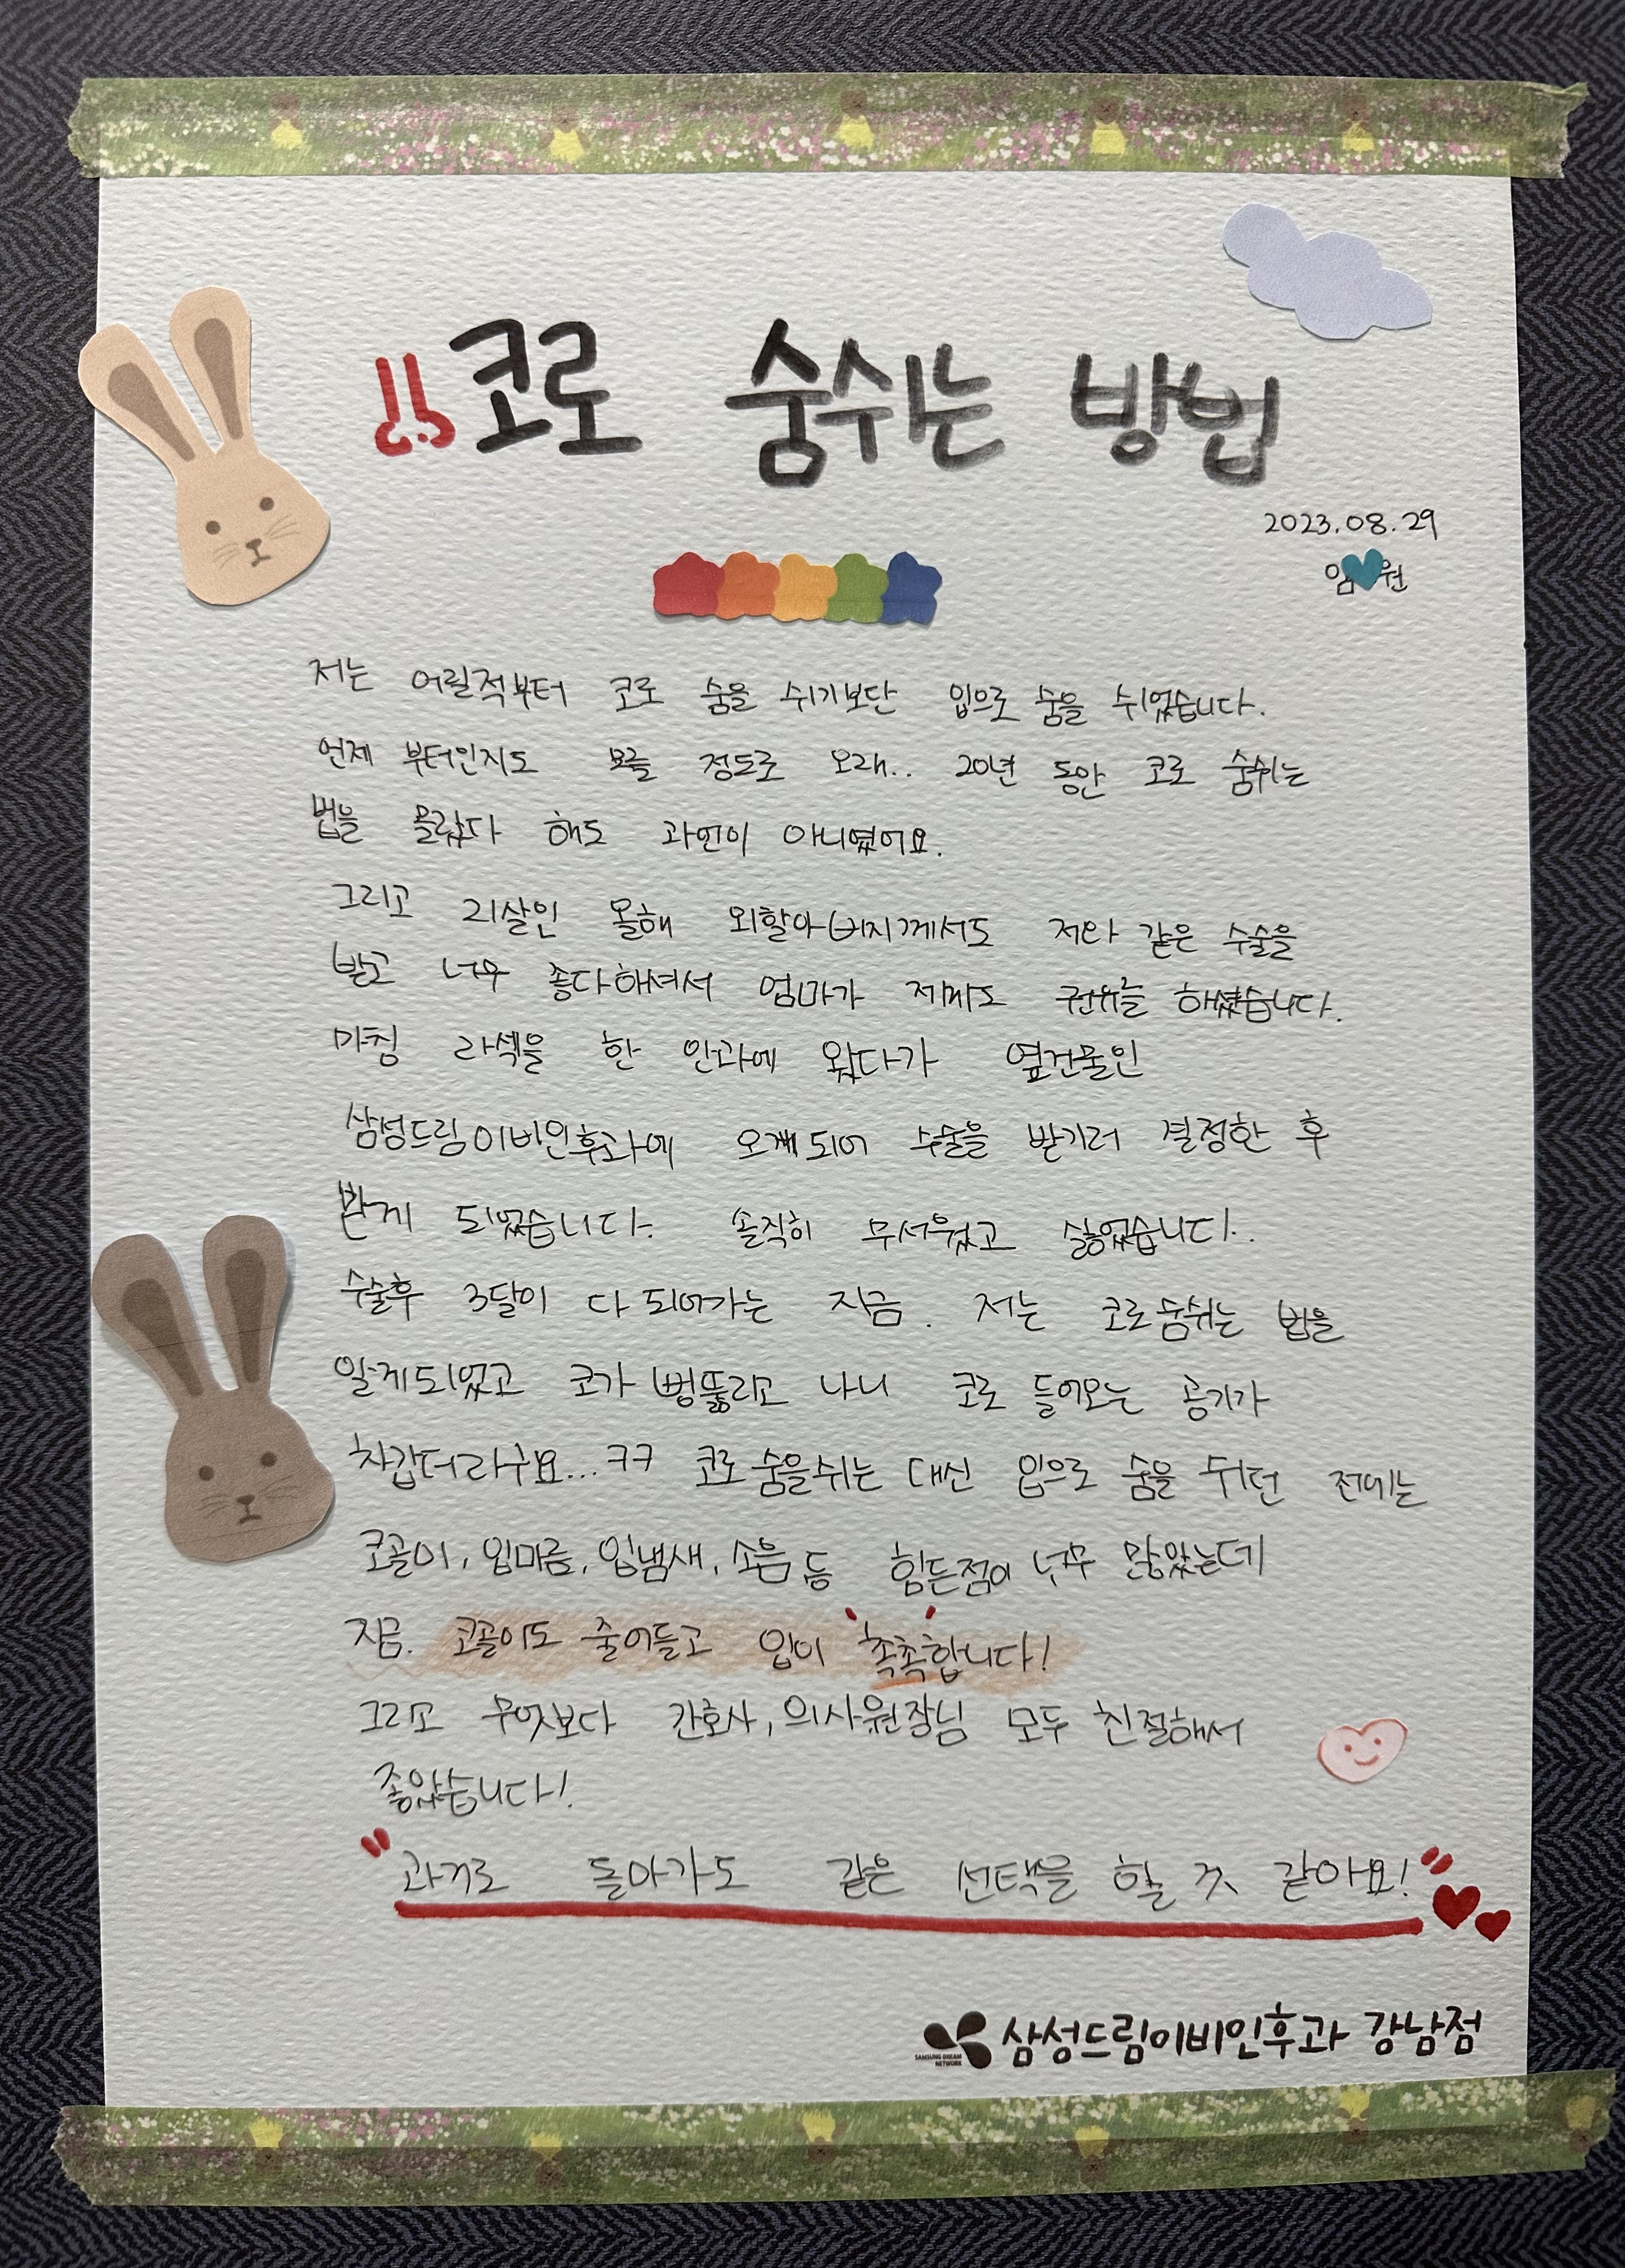 코로 숨쉬는 방법
2023.08.29
임 원
저는 어릴적부터 코로 숨을 쉬기보단 입으로 숨을 쉬었습니다.
언제 부터인지도 모를 정도로 오래.. 20년 동안 코로 숨쉬는
법을 몰랐다 해도 과언이 아니였어요.
그리고 21살인 올해 외할아버지께서도 저와 같은 수술을
받고 너무 좋다하셔서 엄마가 제게도 권유를 해셨습니다.
마침 라섹을 한 안과에 왔다가 옆건물인
삼성드림이비인후과에 오게되어 수술을 받기러 결정한 후
받게 되었습니다. 솔직히 무서웠고 싫었습니다.
수술후 3달이 다 되어가는 지금. 저는 코로숨쉬는 법을
알게되었고 코가 뻥뚫리고 나니 코로 들어오는 공기가
차갑더라구요...ㅋㅋ 코로 숨을쉬는 대신 입으로 숨을 쉬던 전에는
코골이, 입마름, 입냄새, 소음 등 힘든점이 너무 많았는데
지금. 코골이도 줄어들고 입이 촉촉합니다!
그리고 무엇보다 간호사, 의사원장님 모두 친절해서
좋았습니다!
"과거로 돌아가도 같은 선택을 할 것 같아요!"
SAMSUNG DREAM NETWORK 삼성드림이비인후과 강남점